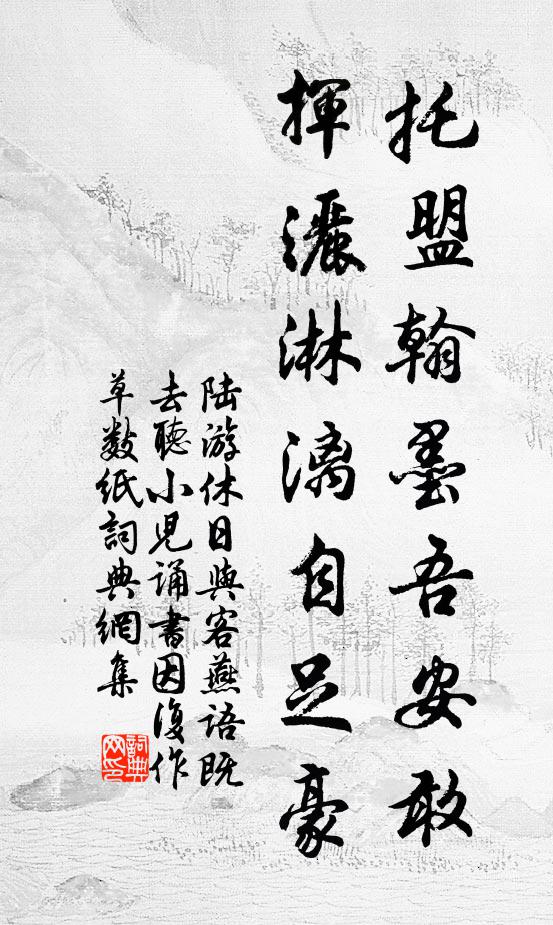 托盟翰墨吾安敢
揮灑淋漓自足豪
陆游休日與客燕语既
去聽小児诵書因復作
草数纸詞典網集
詞典网印